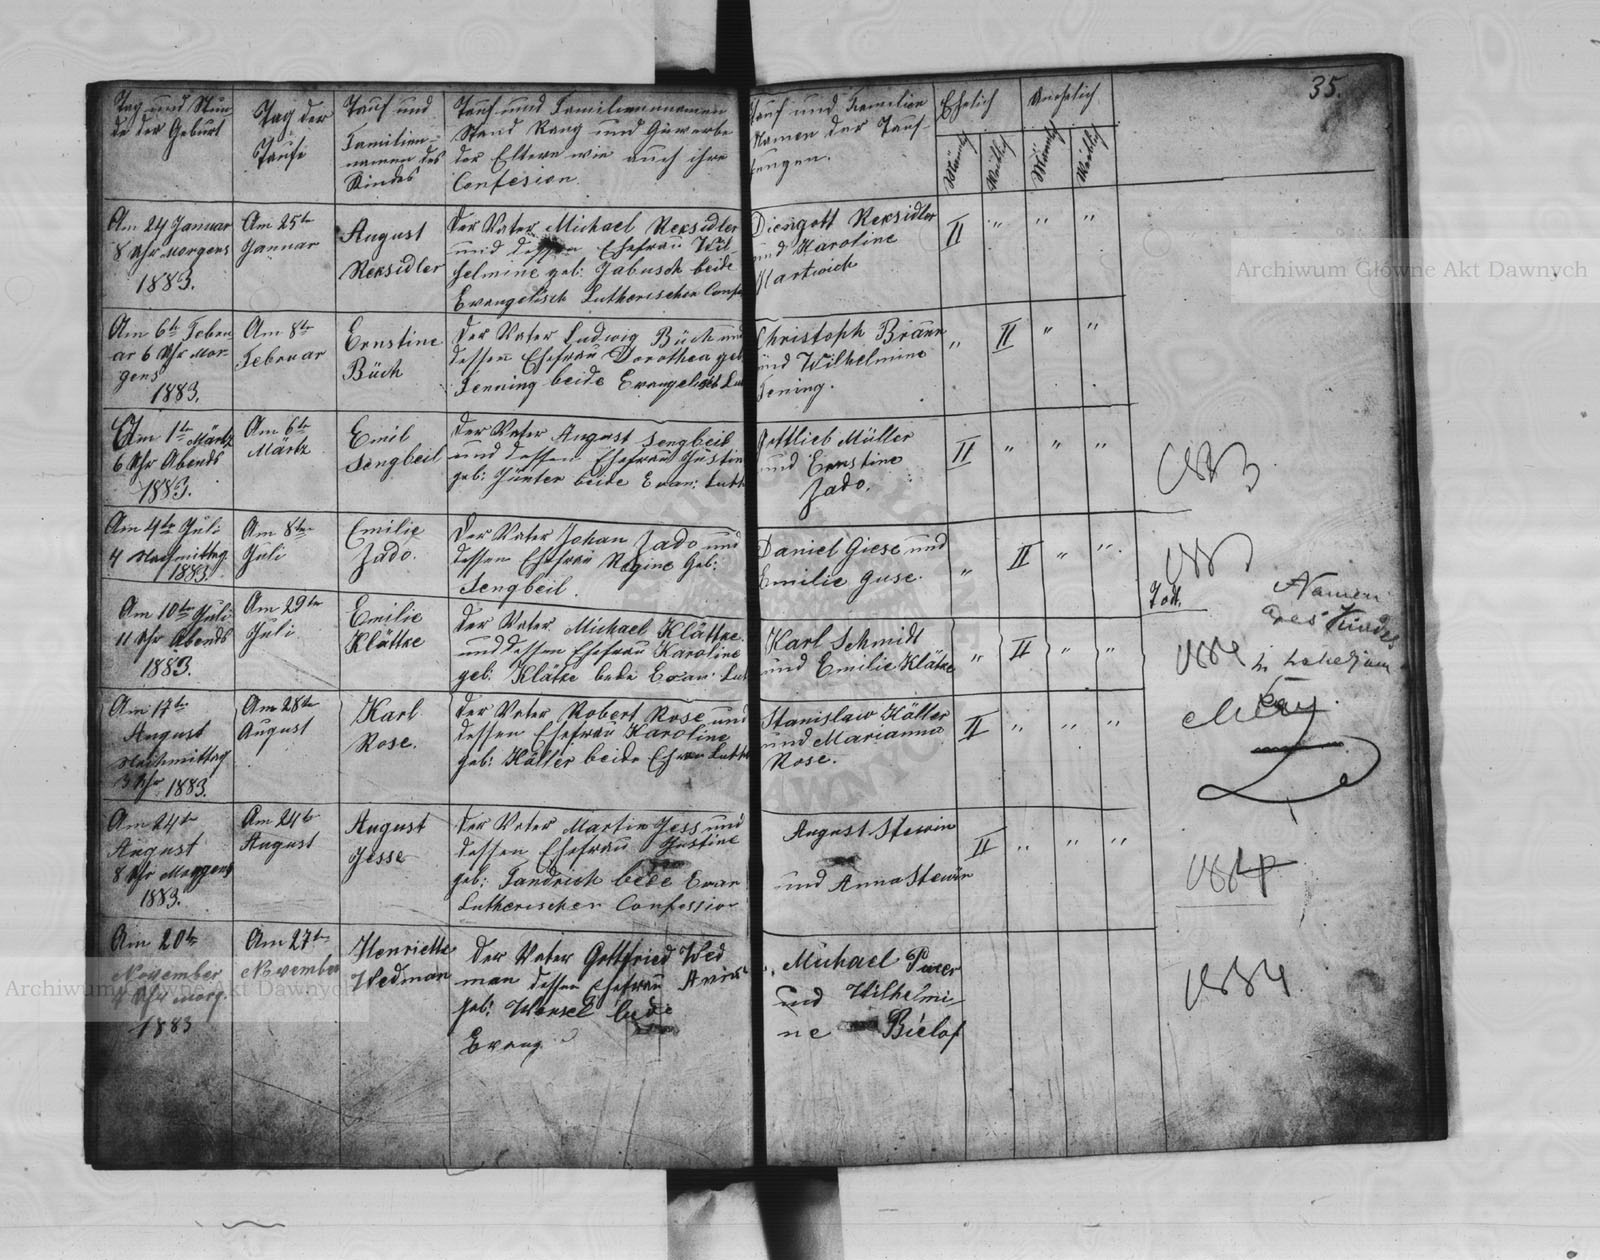 35.
Tag und Stun
de der Geburt
Tag der
Taufe
Tauf und
Familien-
namen des
Kindes
Tauf und Familiennamen
Stand Rang und Gewerbe
der Eltern wie auch ihre
Confesion.
Tauf und Familien
Namen der Tauf-
zeugen.
Ehelich
Unehelich
Männlich
Weiblich
Männlich
Weiblich
Am 24 Januar
8 Uhr Morgens
1883.
Am 25te
Januar
August
Reksidler
Der Vater Michael Reksidler
und dessen Ehefrau Wil
helmine geb: Jabusch beide
Evangelisch Lutherischer Confe
Diengott Reksidler
und Karoline
Hartwich
II " " "
Am 6te Febru
ar 6 Uhr Mor-
gens
1883.
Am 8te
Februar
Ernstine
Büch
Der Vater Ludwig Büch und
dessen Ehefrau Dorothea geb
Fenning beide Evangelisch Lut
Christoph Braun
und Wilhelmine
Fening.
" II " "
Am 1te Märtz
6 Uhr Abends
1883.
Am 6te
Märtz
Emil
Sengbeil
Der Vater August Sengbeil
und dessen Ehefrau Justin
geb: Günter beide Evan: Luth
Gottlieb Müller
und Ernstine
Zado.
II " " "
1883
Am 4te Juli
4 Nachmittag
1883.
Am 8te
Juli
Emilie
Zado.
Der Vater Johan Zado und
dessen Ehefrau Regine Geb:
Sengbeil.
Daniel Giese und
Emilie Guse.
" II " "
1883
Todt.
Am 10te Juli
11 Uhr Abends
1883.
Am 29te
Juli
Emilie
Klättke
Der Vater Michael Klättke
und dessen Ehefrau Karoline
geb: Klätke beide Evan: Lut
Karl Schmidt
und Emilie Klätke
" II " "
1884
Namen
des Kindes
Am 17te
August
Nachmittag
3 Uhr 1883.
Am 28te
August
Karl
Rose.
Der Vater Robert Rose und
dessen Ehefrau Karoline
geb: Hälter beide Evan Luth
Stanislaw Hälter
und Marianna
Rose.
II " " "
Am 24te
August
8 Uhr Morgens
1883.
Am 24te
August
August
Jesse
Der Vater Martin Jess und
dessen Ehefrau Justine
geb: Fandrich bede Evan
Lutherischer Confession
August Stewin
und Anna Stewin
II " " "
1884
Am 20te
November
Uhr Morg.
1883
Am 27te
November
Henriette
Wedman
Der Vater Gottfried Wed
man dessen Ehefrau
geb: Wensel bede
Evang.
Michael
und Wilhelmi
ne
1884
Archiwum Główne Akt Dawnych
Archiwum Główne Akt Dawnych